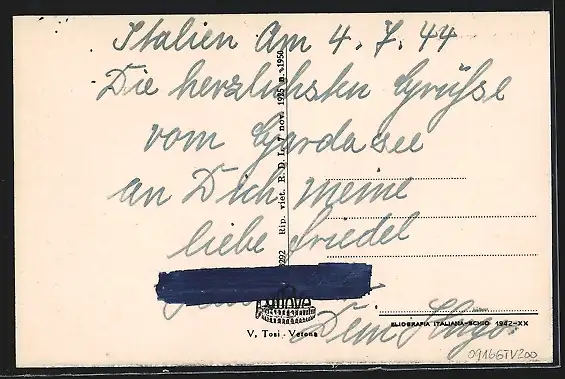 Italien Am 4.7.44
Die herzlichsten Grüße
vom Gardasee
an Dich meine
liebe Friedel
Dein Hugo
Rip. viet. R. D. L. 7 nov. 1925 n. 1950
V. Tosi - Verona
ELIOGRAFIA ITALIANA-SCHIO 1942-XX
09166TV200